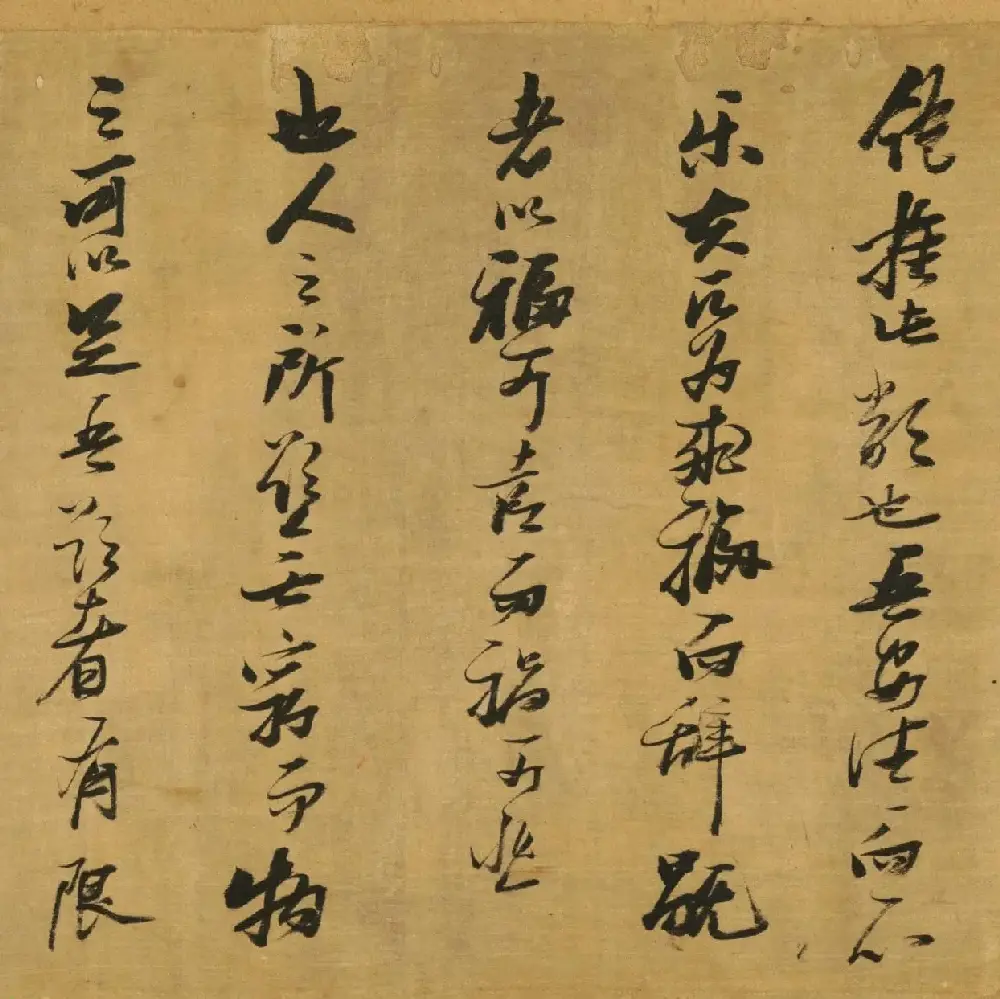 飽推此類也吾安往而不
樂夫所為求福而辭旤
者以福可喜而禍可悲
也人之所慾無窮而物
之可以足吾欲者有限